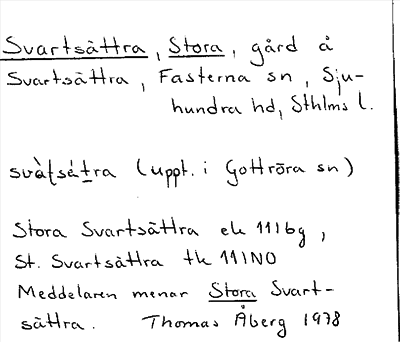 Svartsättra, Stora, gård å
Svartsättra, Fasterna sn, Sju-
hundra hd, Sthlms l.
(uppt. i Gottröra sn)
Stora Svartsättra ek 11Ibg,
St. Svartsättra tk 11INO
Meddelaren menar Stora Svart-
sättra. Thomas Åberg 1978